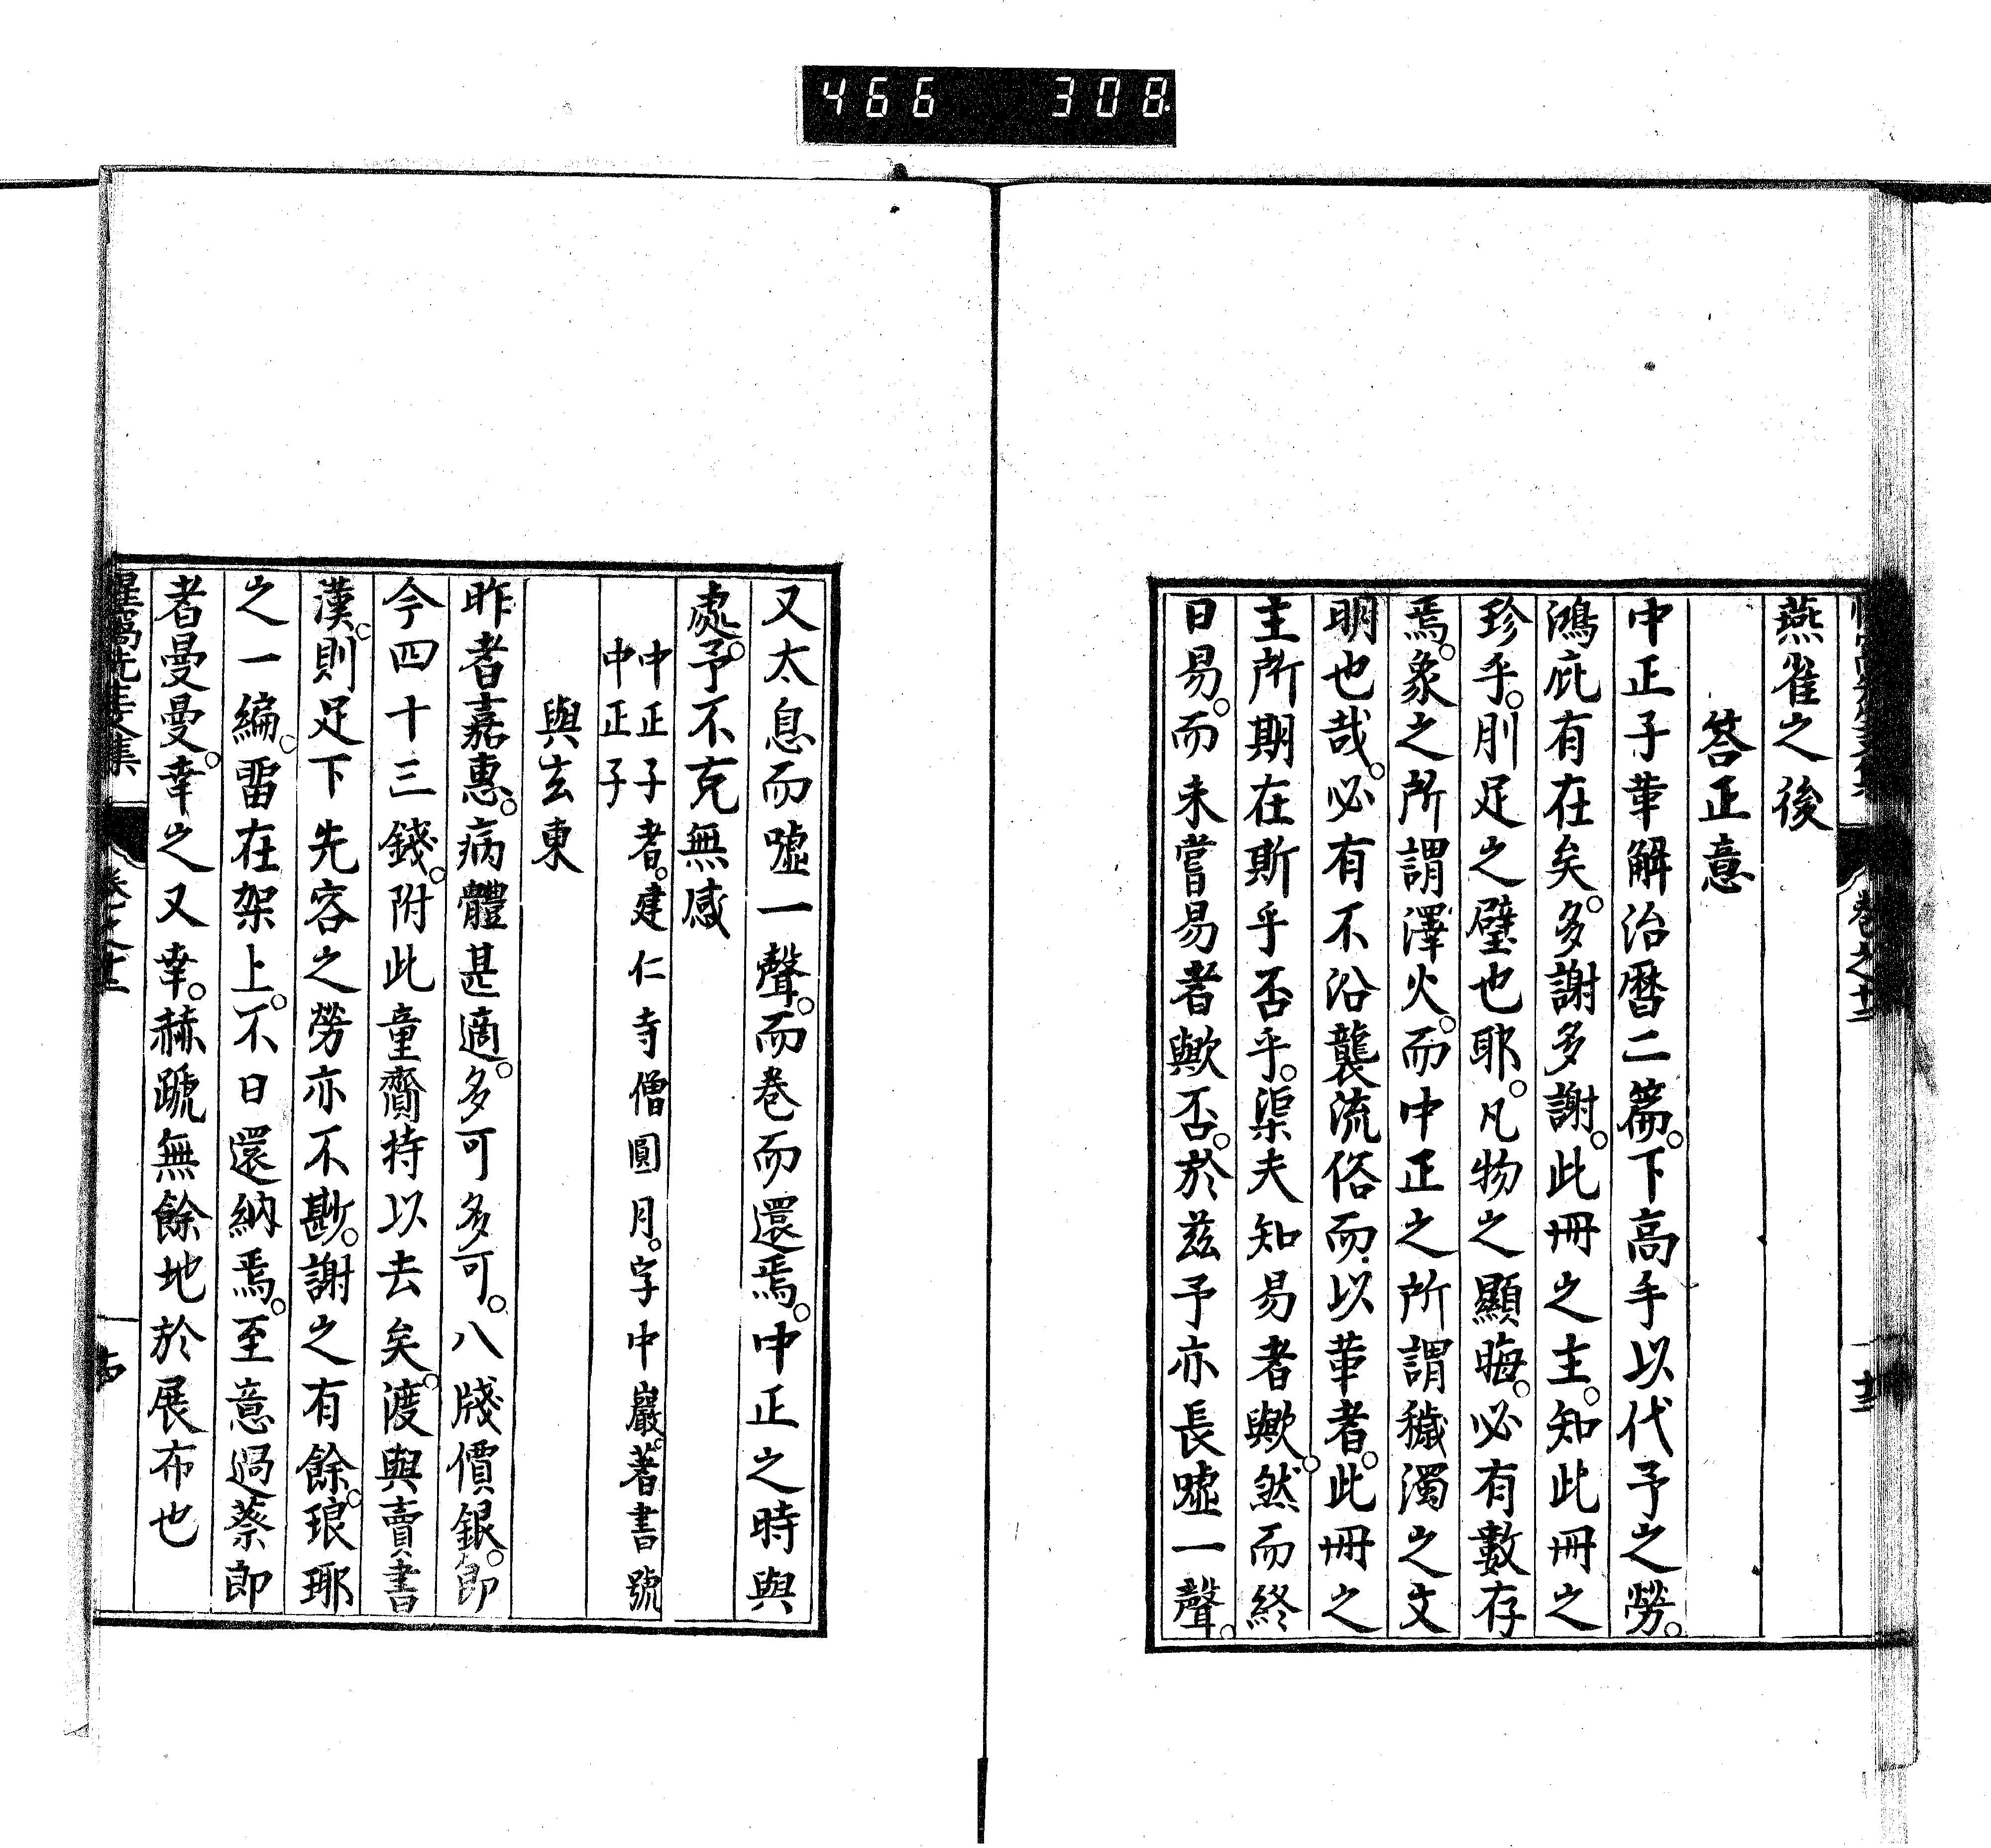 466 308
燕雀之後
答正意
中正子革解治暦二篇。下高手以代予之勞。
鴻庇有在矣。多謝多謝。此冊之主。知此冊之
珍乎。刖足之璧也耶。凡物之顯晦。必有數存
焉。象之所謂澤火。而中正之所謂穢濁之文
明也哉。必有不沿襲流俗而以革者。此冊之
主所期在斯乎否乎。渠夫知易者歟。然而終
日易。而未嘗易者歟否。於茲予亦長噓一聲。
又太息而噓一聲。而巻而還焉。中正之時與
處。予不克無感
中正子者。建仁寺僧圓月。字中巖。著書號
中正子
與玄東
昨者嘉惠。病體甚適。多可多可。八牋價銀。卽
今四十三錢。附此童齎持以去矣。渡與賣書
漢。則足下先容之勞亦不尠。謝之有餘。琅琊
之一編。畱在架上。不日還納焉。至意過蔡郎
者曼曼。幸之又幸。赫蹏無餘地於展布也
惺窩先生文集 卷之十二